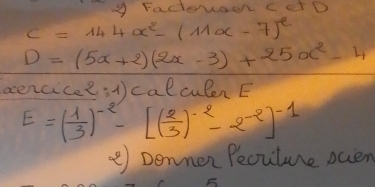 2) Factoriser C et D
C = 144x² - (11x - 7)²
D = (5x+2)(2x - 3) + 25x² - 4
Exercice2 : 1) calculer E
E = (1/3)⁻² - [(2/3)⁻² - 2⁻²]⁻¹
2) Donner l'ecriture scien